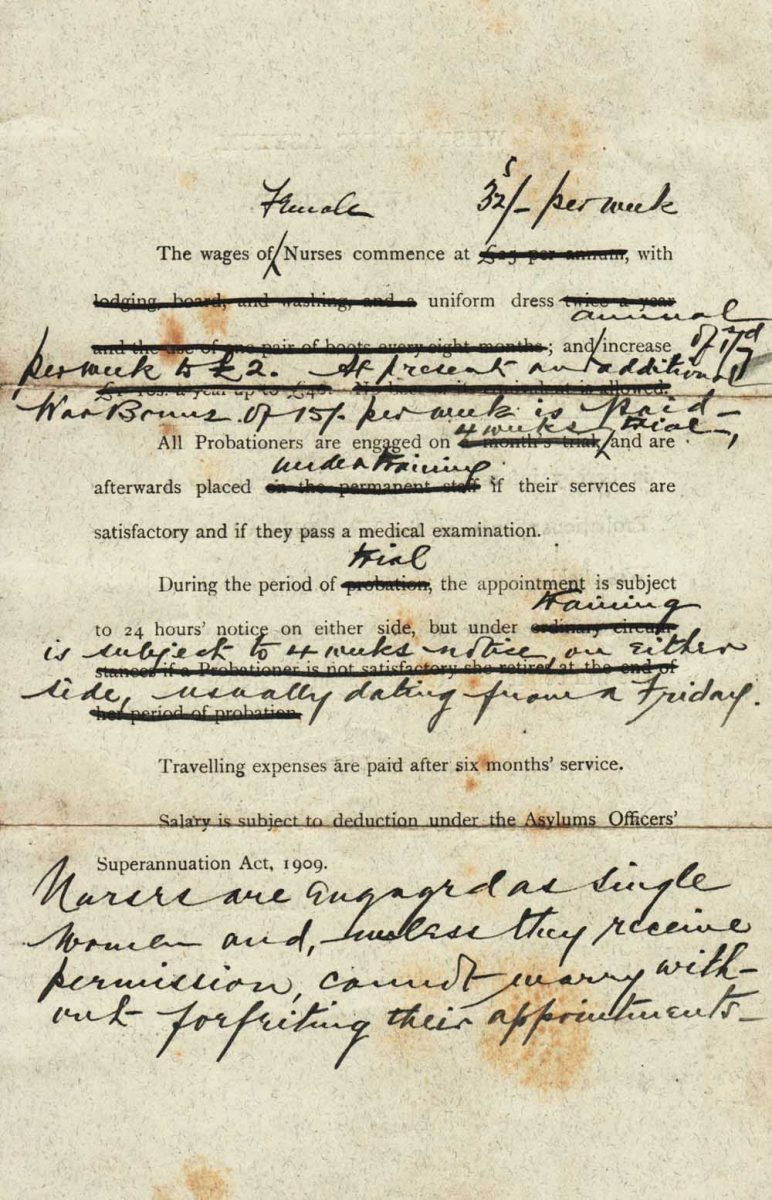 Female 35/- per week
The wages of Nurses commence at £25 per annum, with
lodging, board, and washing, and a uniform dress twice a year
annual
and the use of one pair of boots every eight months; and increase of
per week to £2. At present an additional
War Bonus of 15/- per week is paid -
4 weeks trial,
All Probationers are engaged on a month's trial, and are
under training
afterwards placed on the permanent staff if their services are
satisfactory and if they pass a medical examination.
trial
During the period of probation, the appointment is subject
training
to 24 hours' notice on either side, but under ordinary circum-
is subject to 4 weeks notice, on either
stances if a Probationer is not satisfactory she retires at the end of
side, usually dating from a Friday.
her period of probation
Travelling expenses are paid after six months' service.
Salary is subject to deduction under the Asylums Officers'
Superannuation Act, 1909.
Nurses are engaged as single
women and, unless they receive
permission, cannot marry with-
out forfeiting their appointments -